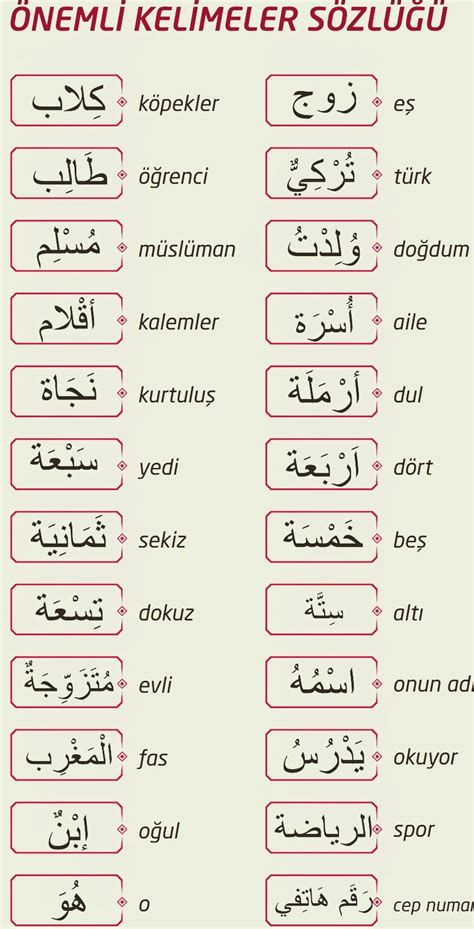 ÖNEMLİ KELİMELER SÖZLÜĞÜ
كِلاب köpekler
زوج eş
طَالِب öğrenci
تُرْكِيٌّ türk
مُسْلِم müslüman
وُلِدْتُ doğdum
أقْلام kalemler
أُسْرَة aile
نَجَاة kurtuluş
أرْمَلَة dul
سَبْعَة yedi
اَرْبَعَة dört
ثَمَانِيَة sekiz
خَمْسَة beş
تِسْعَة dokuz
سِتَّة altı
مُتَزَوِّجَةٌ evli
اسْمُهُ onun adı
الْمَغْرِب fas
يَدْرُسُ okuyor
إبْنٌ oğul
الرياضة spor
هُوَ o
رَقَم هَاتِفي cep numar